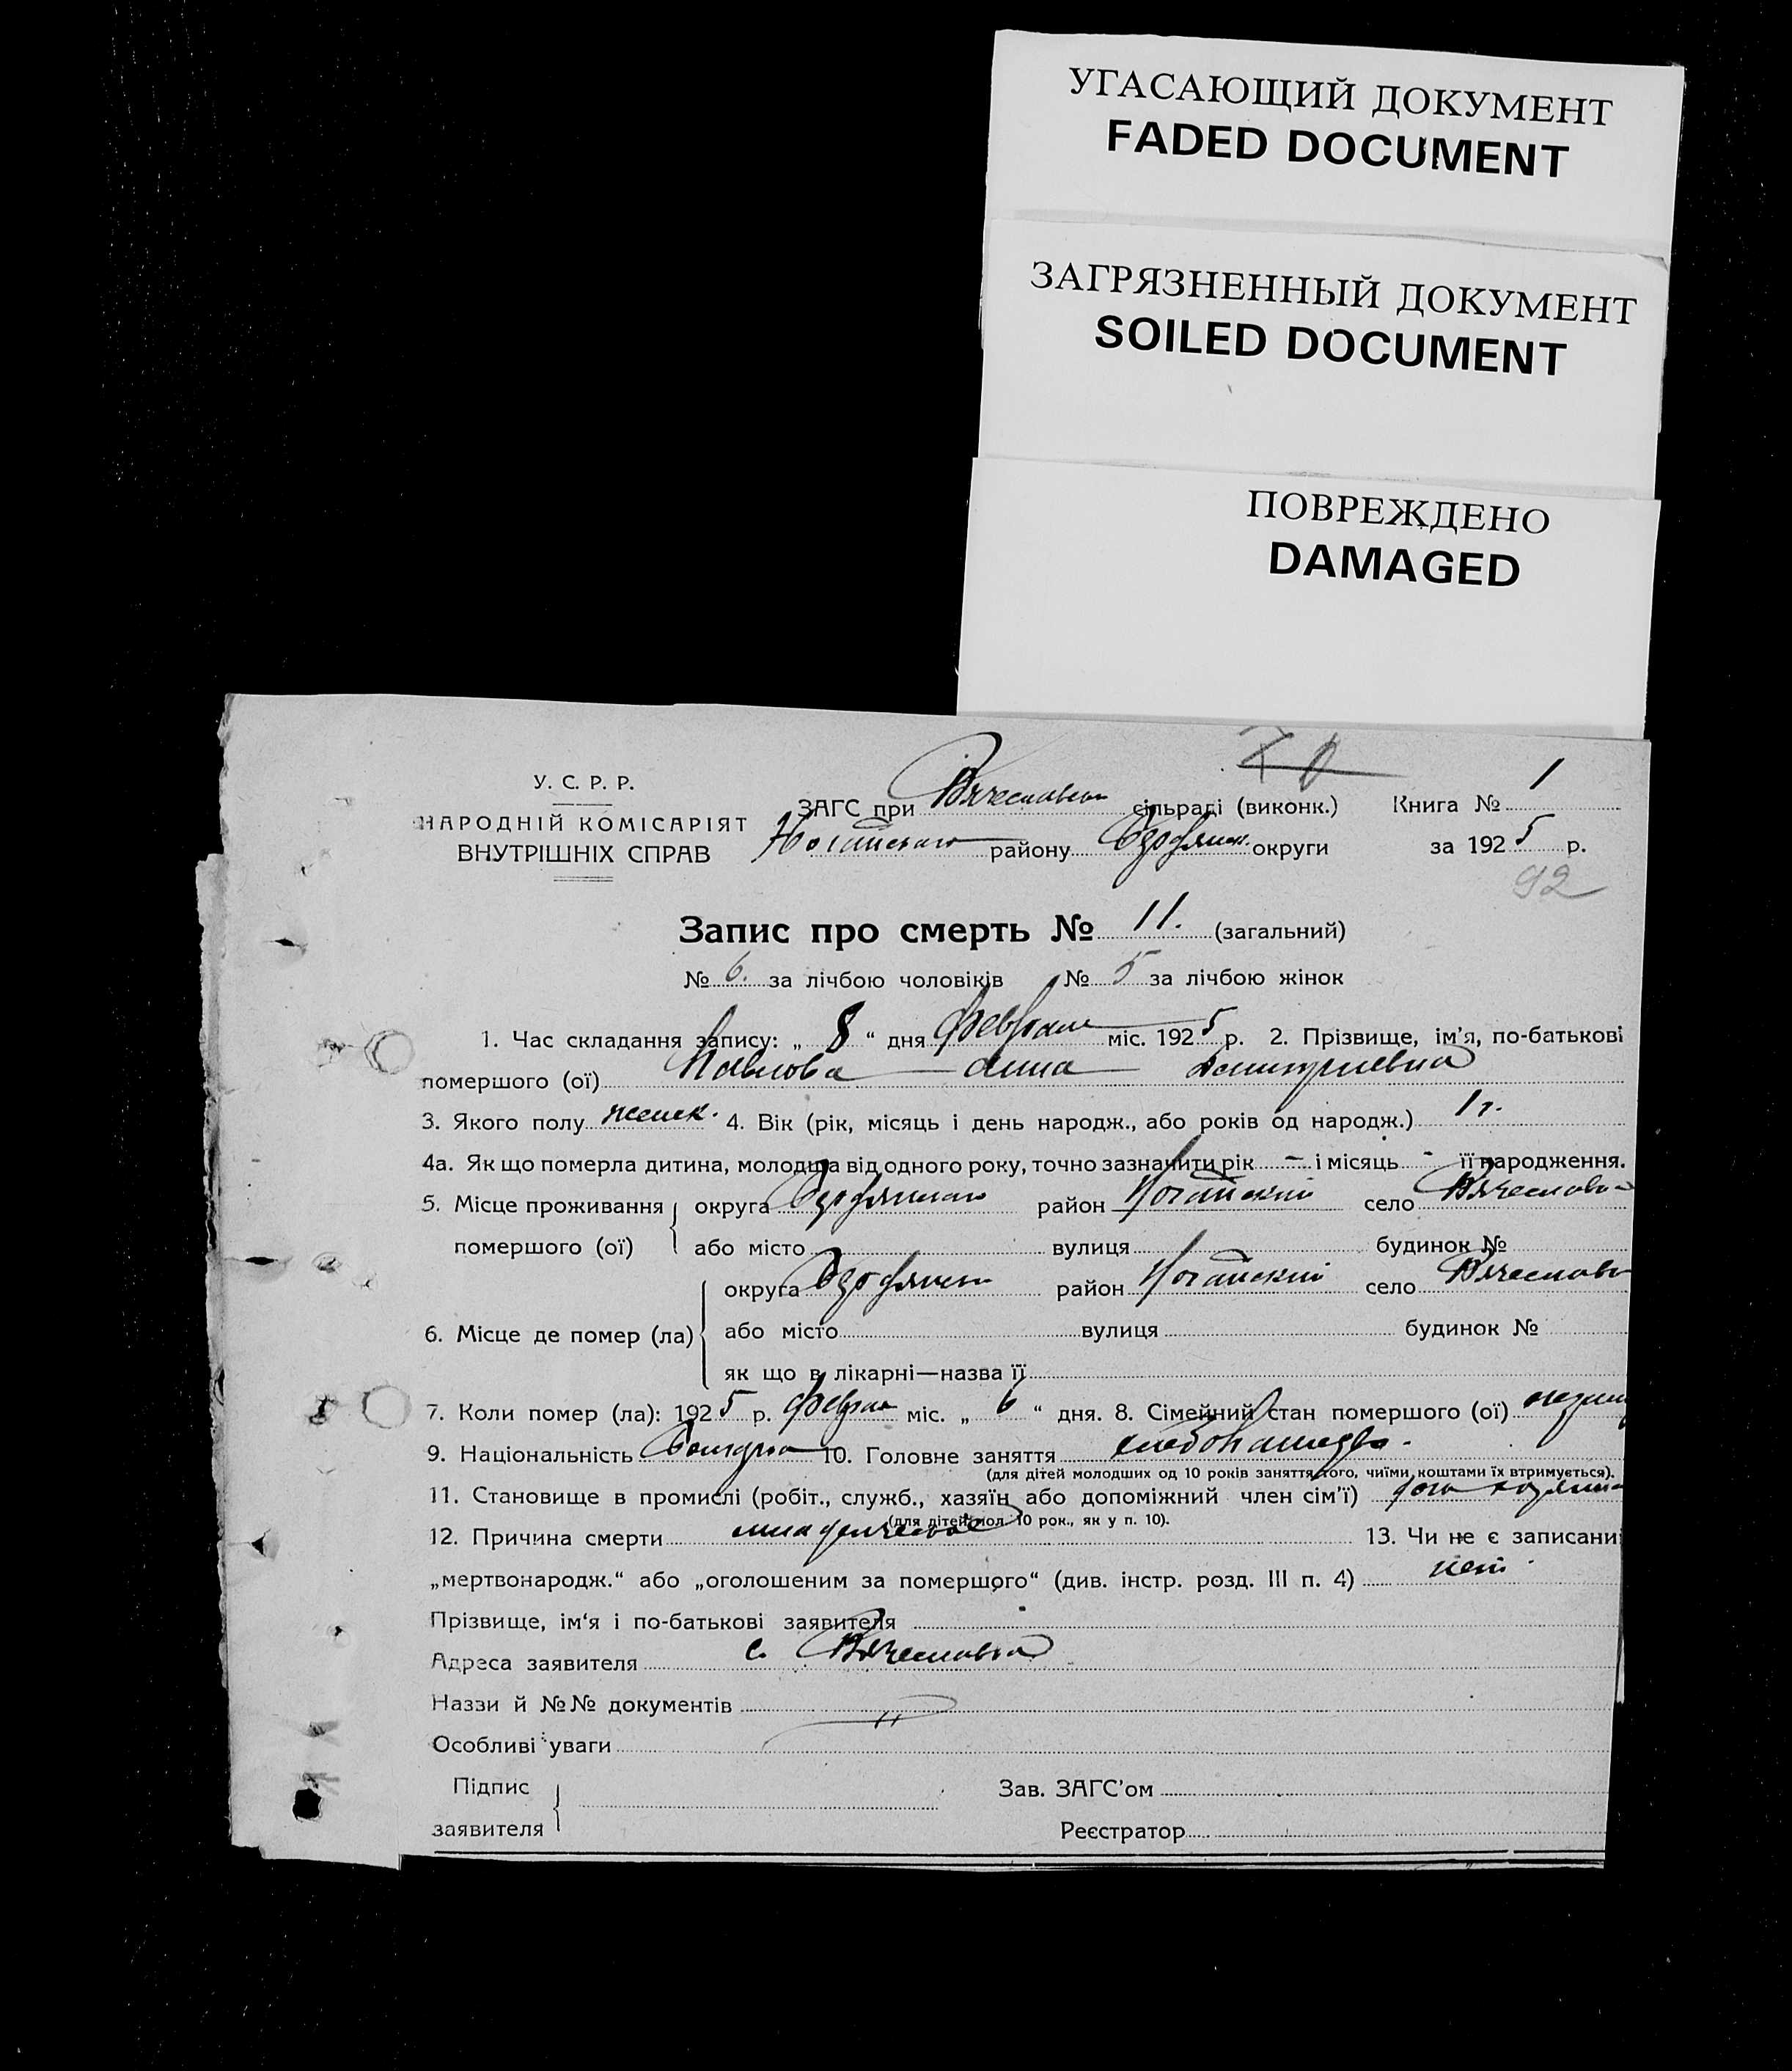 УГАСАЮЩИЙ ДОКУМЕНТ
FADED DOCUMENT
ЗАГРЯЗНЕННЫЙ ДОКУМЕНТ
SOILED DOCUMENT
ПОВРЕЖДЕНО
DAMAGED
У. С. Р. Р.
НАРОДНІЙ КОМІСАРІЯТ
ВНУТРІШНІХ СПРАВ
ЗАГС при Вячеславском сільраді (виконк.) Книга № 1
Ногайского району округи за 1925 р.
92
Запис про смерть № 11. (загальний)
№ 6. за лічбою чоловіків № 5 за лічбою жінок
1. Час складання запису: „ 8 “ дня февраля міс. 1925 р. 2. Прізвище, ім’я, по-батькові
помершого (ої) Павлова Анна Дмитриевна
3. Якого полу женск. 4. Вік (рік, місяць і день народж., або років од народж.) 1 г.
4а. Як що померла дитина, молодша від одного року, точно зазначити рік – і місяць - її народження.
5. Місце проживання округа район Ногайский село Вячеславка
помершого (ої) або місто вулиця будинок №
округа район Ногайский село Вячеславк
6. Місце де помер (ла) або місто вулиця будинок №
як що в лікарні—назва її
7. Коли помер (ла): 1925 р. феврал міс. „ 6 “ дня. 8. Сімейний стан помершого (ої)
9. Національність Болгарка 10. Головне заняття хлебопашество.
(для дітей молодших од 10 років заняття того, чиїми коштами їх втримується).
11. Становище в промислі (робіт., служб., хазяїн або допоміжний член сім’ї) дочь хозяина
(для дітей мол. 10 рок., як у п. 10).
12. Причина смерти младенческая 13. Чи не є записани
„мертвонародж.“ або „оголошеним за помершого“ (див. інстр. розд. III п. 4) нет
Прізвище, ім‘я і по-батькові заявителя
Адреса заявителя с. Вячеславка
Наззи й №№ документів
Особливі уваги
Підпис Зав. ЗАГС’ом
заявителя Реєстратор